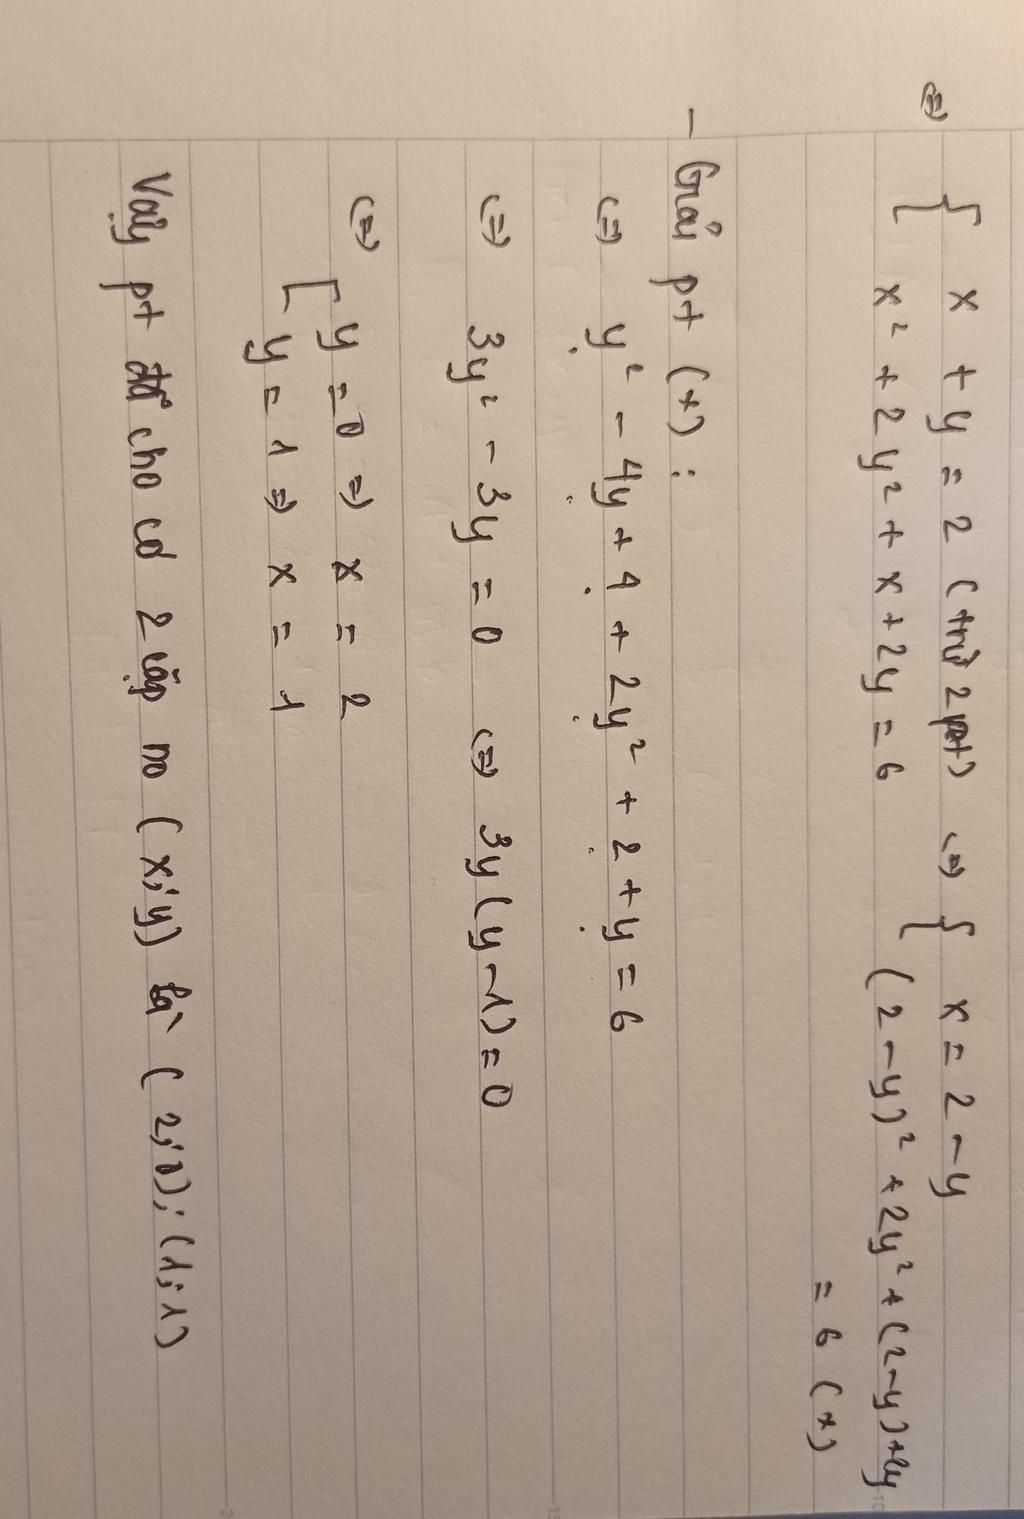 (=) { x + y = 2 (trừ 2 pt) (=) { x = 2 - y
x² + 2y² + x + 2y = 6 (2-y)² + 2y² + (2-y) + 2y
= 6 (*)
- Giải pt (*) :
(=) y² - 4y + 4 + 2y² + 2 + y = 6
(=) 3y² - 3y = 0 (=) 3y (y-1) = 0
(=) [ y = 0 => x = 2
y = 1 => x = 1
Vậy pt đã cho có 2 cặp no (x;y) là (2;0); (1;1)